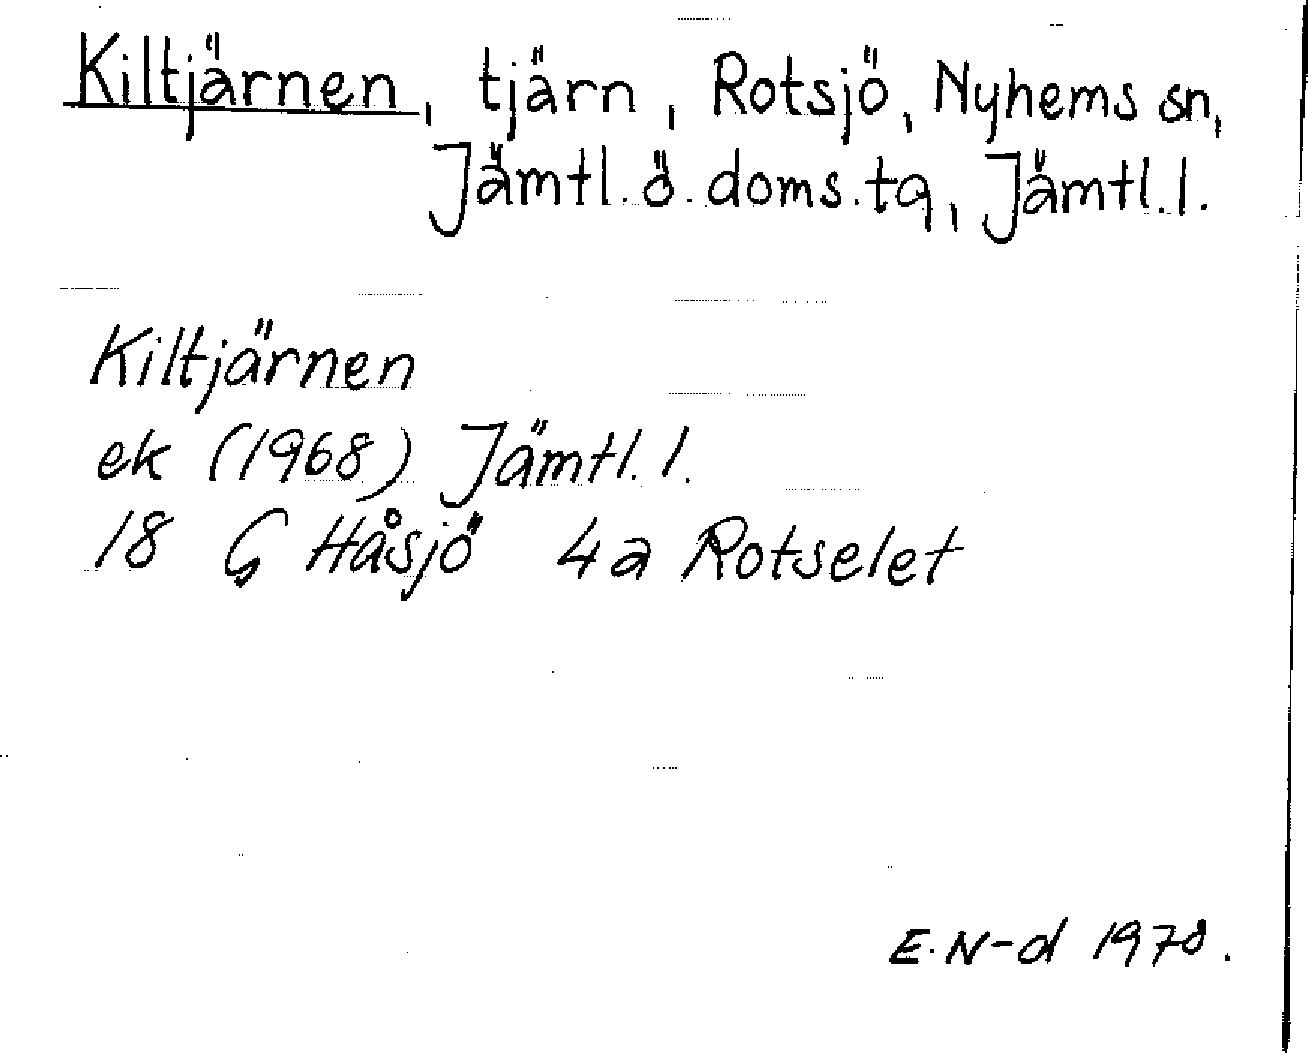 Kiltjärnen, tjärn, Rotsjö, Nyhems sn,
Jämtl. ö. doms. tg, Jämtl. l.
Kiltjärnen
ek (1968) Jämtl. l.
18 G Håsjö 4a Rotselet
E. N-d 1978.